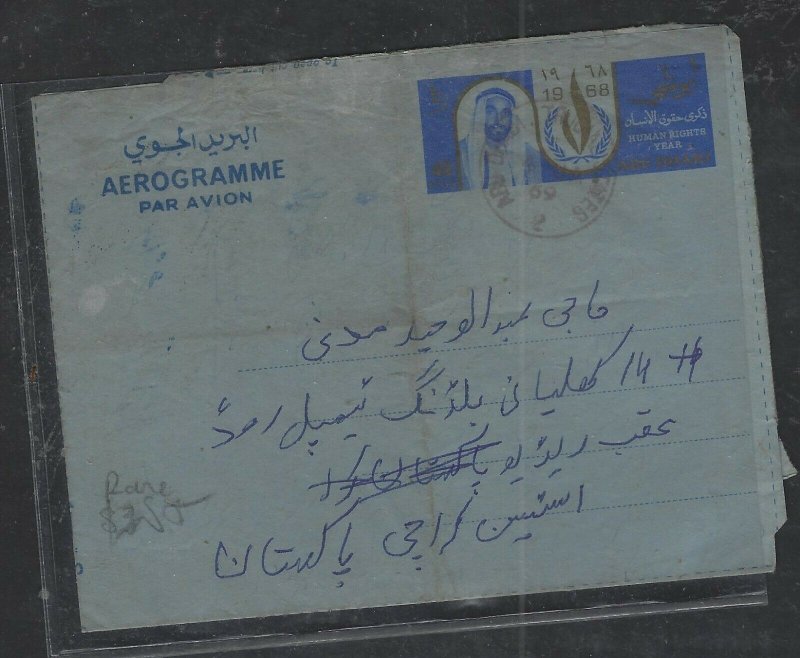 To open
البريد الجوي
AEROGRAMME
PAR AVION
١٩ ٦٨
1968
ذكرى حقوق الإنسان
HUMAN RIGHTS
YEAR
حاجی عبدالوحید مدنی
# 14 کھلیانی بلڈنگ ٹیمپل روڈ
عقب ریڈیو
اسٹیشن کراچی پاکستان
Rare